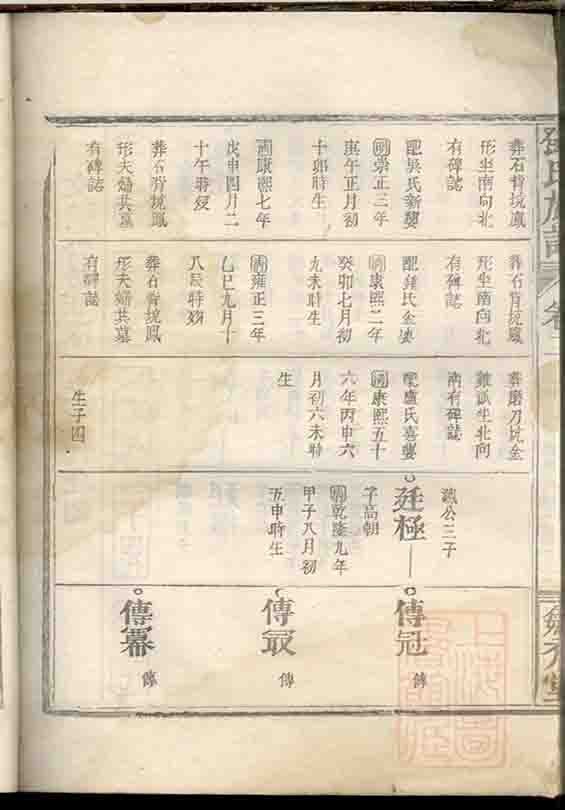 葬石背坑鳳
形坐南向北
有碑誌
配吳氏新婆
國崇正三年
庚午正月初
十卯時生
國康熙七年
戊申四月二
十午時歿
葬石背坑鳳
形夫婦共墓
有碑誌
葬石背坑鳳
形坐南向北
有碑誌
氏金婆
國康熙二年
癸卯七月初
九未時生
國雍正三年
乙巳九月十
八辰時歿
葬石背坑鳳
形夫婦共墓
有碑誌
葬磨刀坑金
坐北向
南有碑誌
配盧氏喜婆
國康熙五十
六年丙申六
月初六未時
生
生子四
公三子
廷極
子高朝
國乾隆九年
甲子八月初
五申時生
傳冠
傳
傳冣
傳
傳冪
傳
氏族譜
卷
堂
上海圖
書館藏